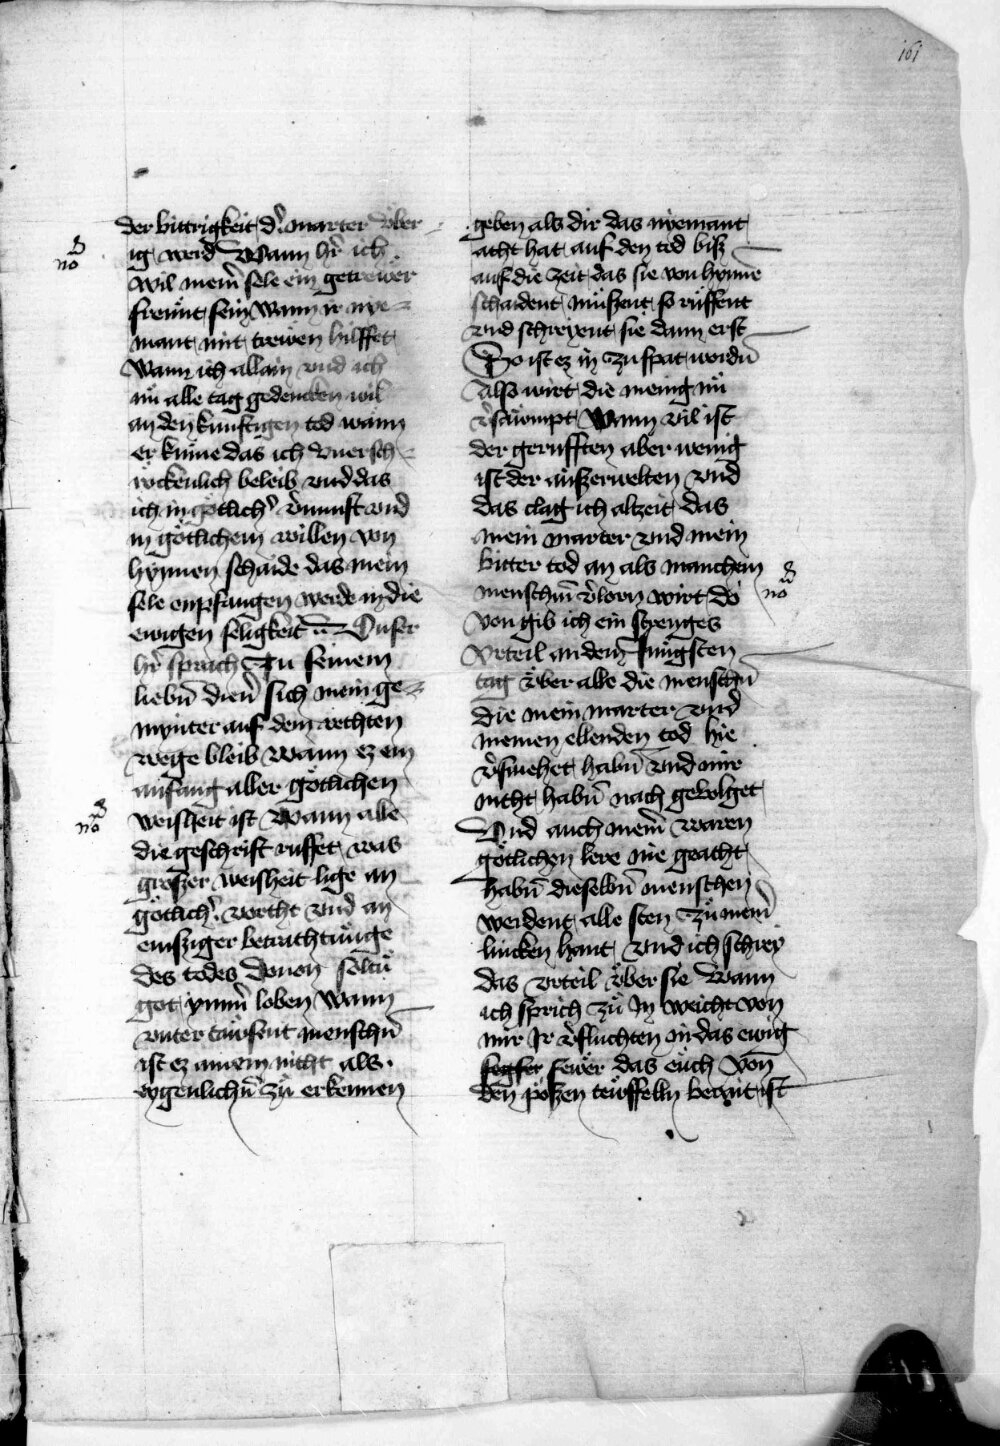 161
der bittrigkeit dˀ marter v̈ber
ig werd Wann hr̄ ich
wil mein̄ sele ein getrewer
freünt sein Wann ir nye=
mant mit trewen hilffet
Wann ich allain vnd ich
nü alle tag gedencken wil
an den kunftigen tod wann
er kume das ich vnersch=
rockenlich beleib vnd das
ich in götlichˀ vˀnunft vnd
in götlichem willen von
hynnen schaide das mein
sele enpfangen werde in die
ewigen seligkeit Vnser
hr̄ sprach Zu seinem
liebn̄ dienˀ sich mein ge=
mynter auf dem rechten
wege bleib wann ez ein
anfang aller götlichen
weisheit ist Wann alle
die geschrift ruffet was
groszer weisheit lige an
götlichˀ vorcht vnd an
emsziger betrachtunge
des todes Dovon soltu
got ymm̄ loben Wann
vnter tausent menschn̄
ist ez ainem nicht als
eygenlichn̄ zü erkennen
geben als dir das nyemant
acht hat auf den tod bisz
auf die zeit das sie von hynne
schaident müszent so rüffent
vnd schreyent sie dann erst
So ist ez in zu spat wordn̄
Also wirt die menig nü
vˀsaumpt Wann vil ist
der gerufften aber wenig
ist der auszerwelten Vnd
das clag ich altzeit das
mein marter vnd mein
bitter tod an als manchem
menschn̄ vˀlorn wirt do
von gib ich ein strenges
Vrteil an dem Jungsten
tag v̈ber alle die menschn̄
die mein marter vnd
meinen ellenden tod hie
vˀsmehet habn̄ vnd mir
nicht habn̄ nach gevolget
Vnd auch mein̄ waren
götlichen lere nie geacht
habn̄ dieselbn̄ menschen
werdent alle sten zü mein̄
lincken hant Vnd ich schrey
das vrteil v̈ber sie Wann
ich sprich zü In weicht von
mir Ir vˀfluchten in das ewig
segfer fewer das eüch von
den pöszen teüffelln berait ist